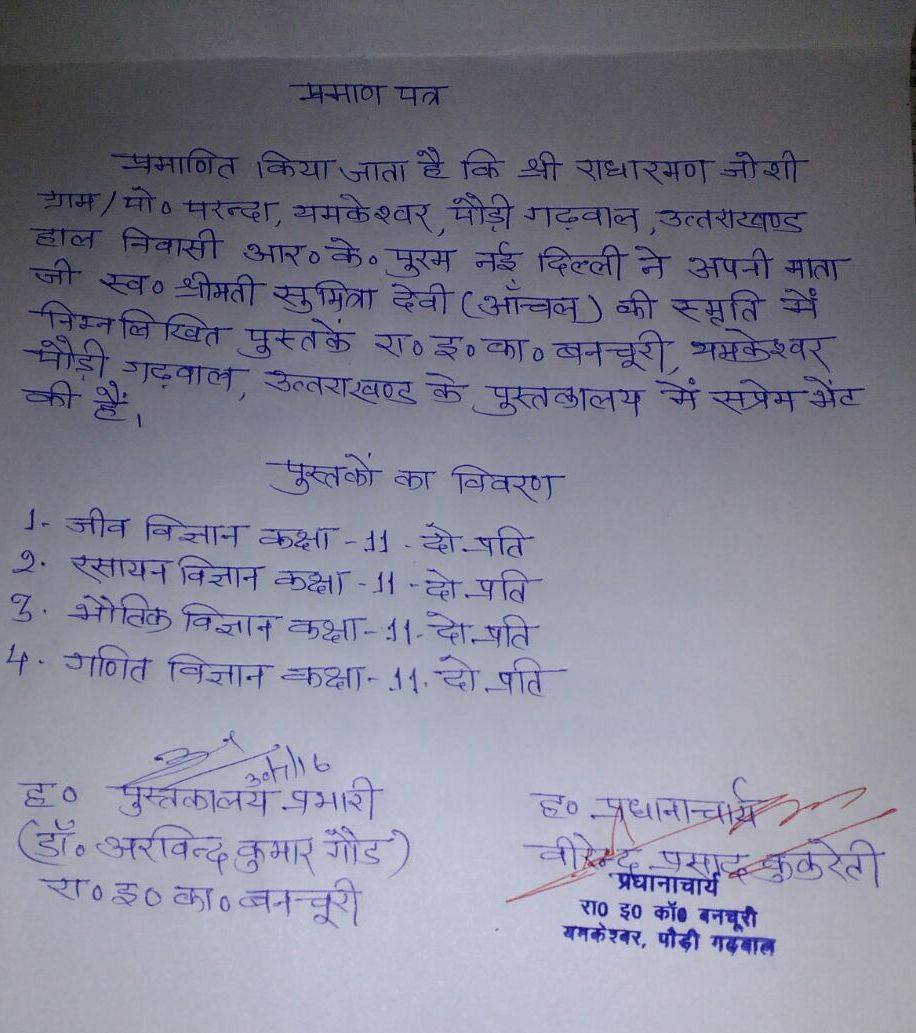 प्रमाण पत्र
प्रमाणित किया जाता है कि श्री राधारमण जोशी
ग्राम/पो० परन्दा, यमकेश्वर, पौड़ी गढ़वाल, उत्तराखण्ड
हाल निवासी आर० के० पुरम नई दिल्ली ने अपनी माता
जी स्व० श्रीमती सुमित्रा देवी (आँचल) की स्मृति में
निम्नलिखित पुस्तकें रा० इ० का० बनचूरी, यमकेश्वर
पौड़ी गढ़वाल, उत्तराखण्ड के पुस्तकालय में सप्रेम भेंट
की हैं।
पुस्तकों का विवरण
1- जीव विज्ञान कक्षा - 11 - दो प्रति
2. रसायन विज्ञान कक्षा - 11 - दो प्रति
3. भौतिक विज्ञान कक्षा - 11 - दो प्रति
4. गणित विज्ञान कक्षा - 11. दो प्रति
ह० पुस्तकालय प्रभारी
(डॉ० अरविन्द कुमार गौड)
रा० इ० का० बनचूरी
ह० प्रधानाचार्य
वीरेन्द्र प्रसाद कुकरेती
प्रधानाचार्य
रा0 इ0 कॉ0 बनचूरी
यमकेश्वर, पौड़ी गढ़वाल